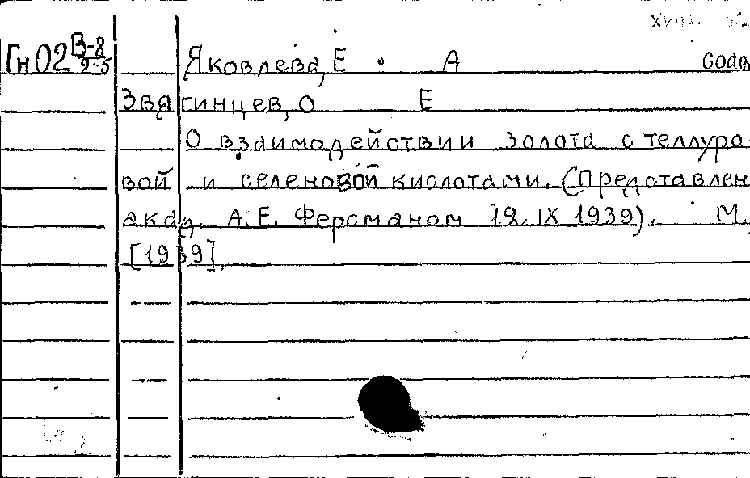 XVIII
Гн02 В-8
2-5
Яковлева, Е. А соав
Звягинцев, О Е
О взаимодействии золота с теллуро
вой и селеновой кислотами. (Представлен
акад. А.Е. Ферсманом 19.IX 1939). М.,
[1939].